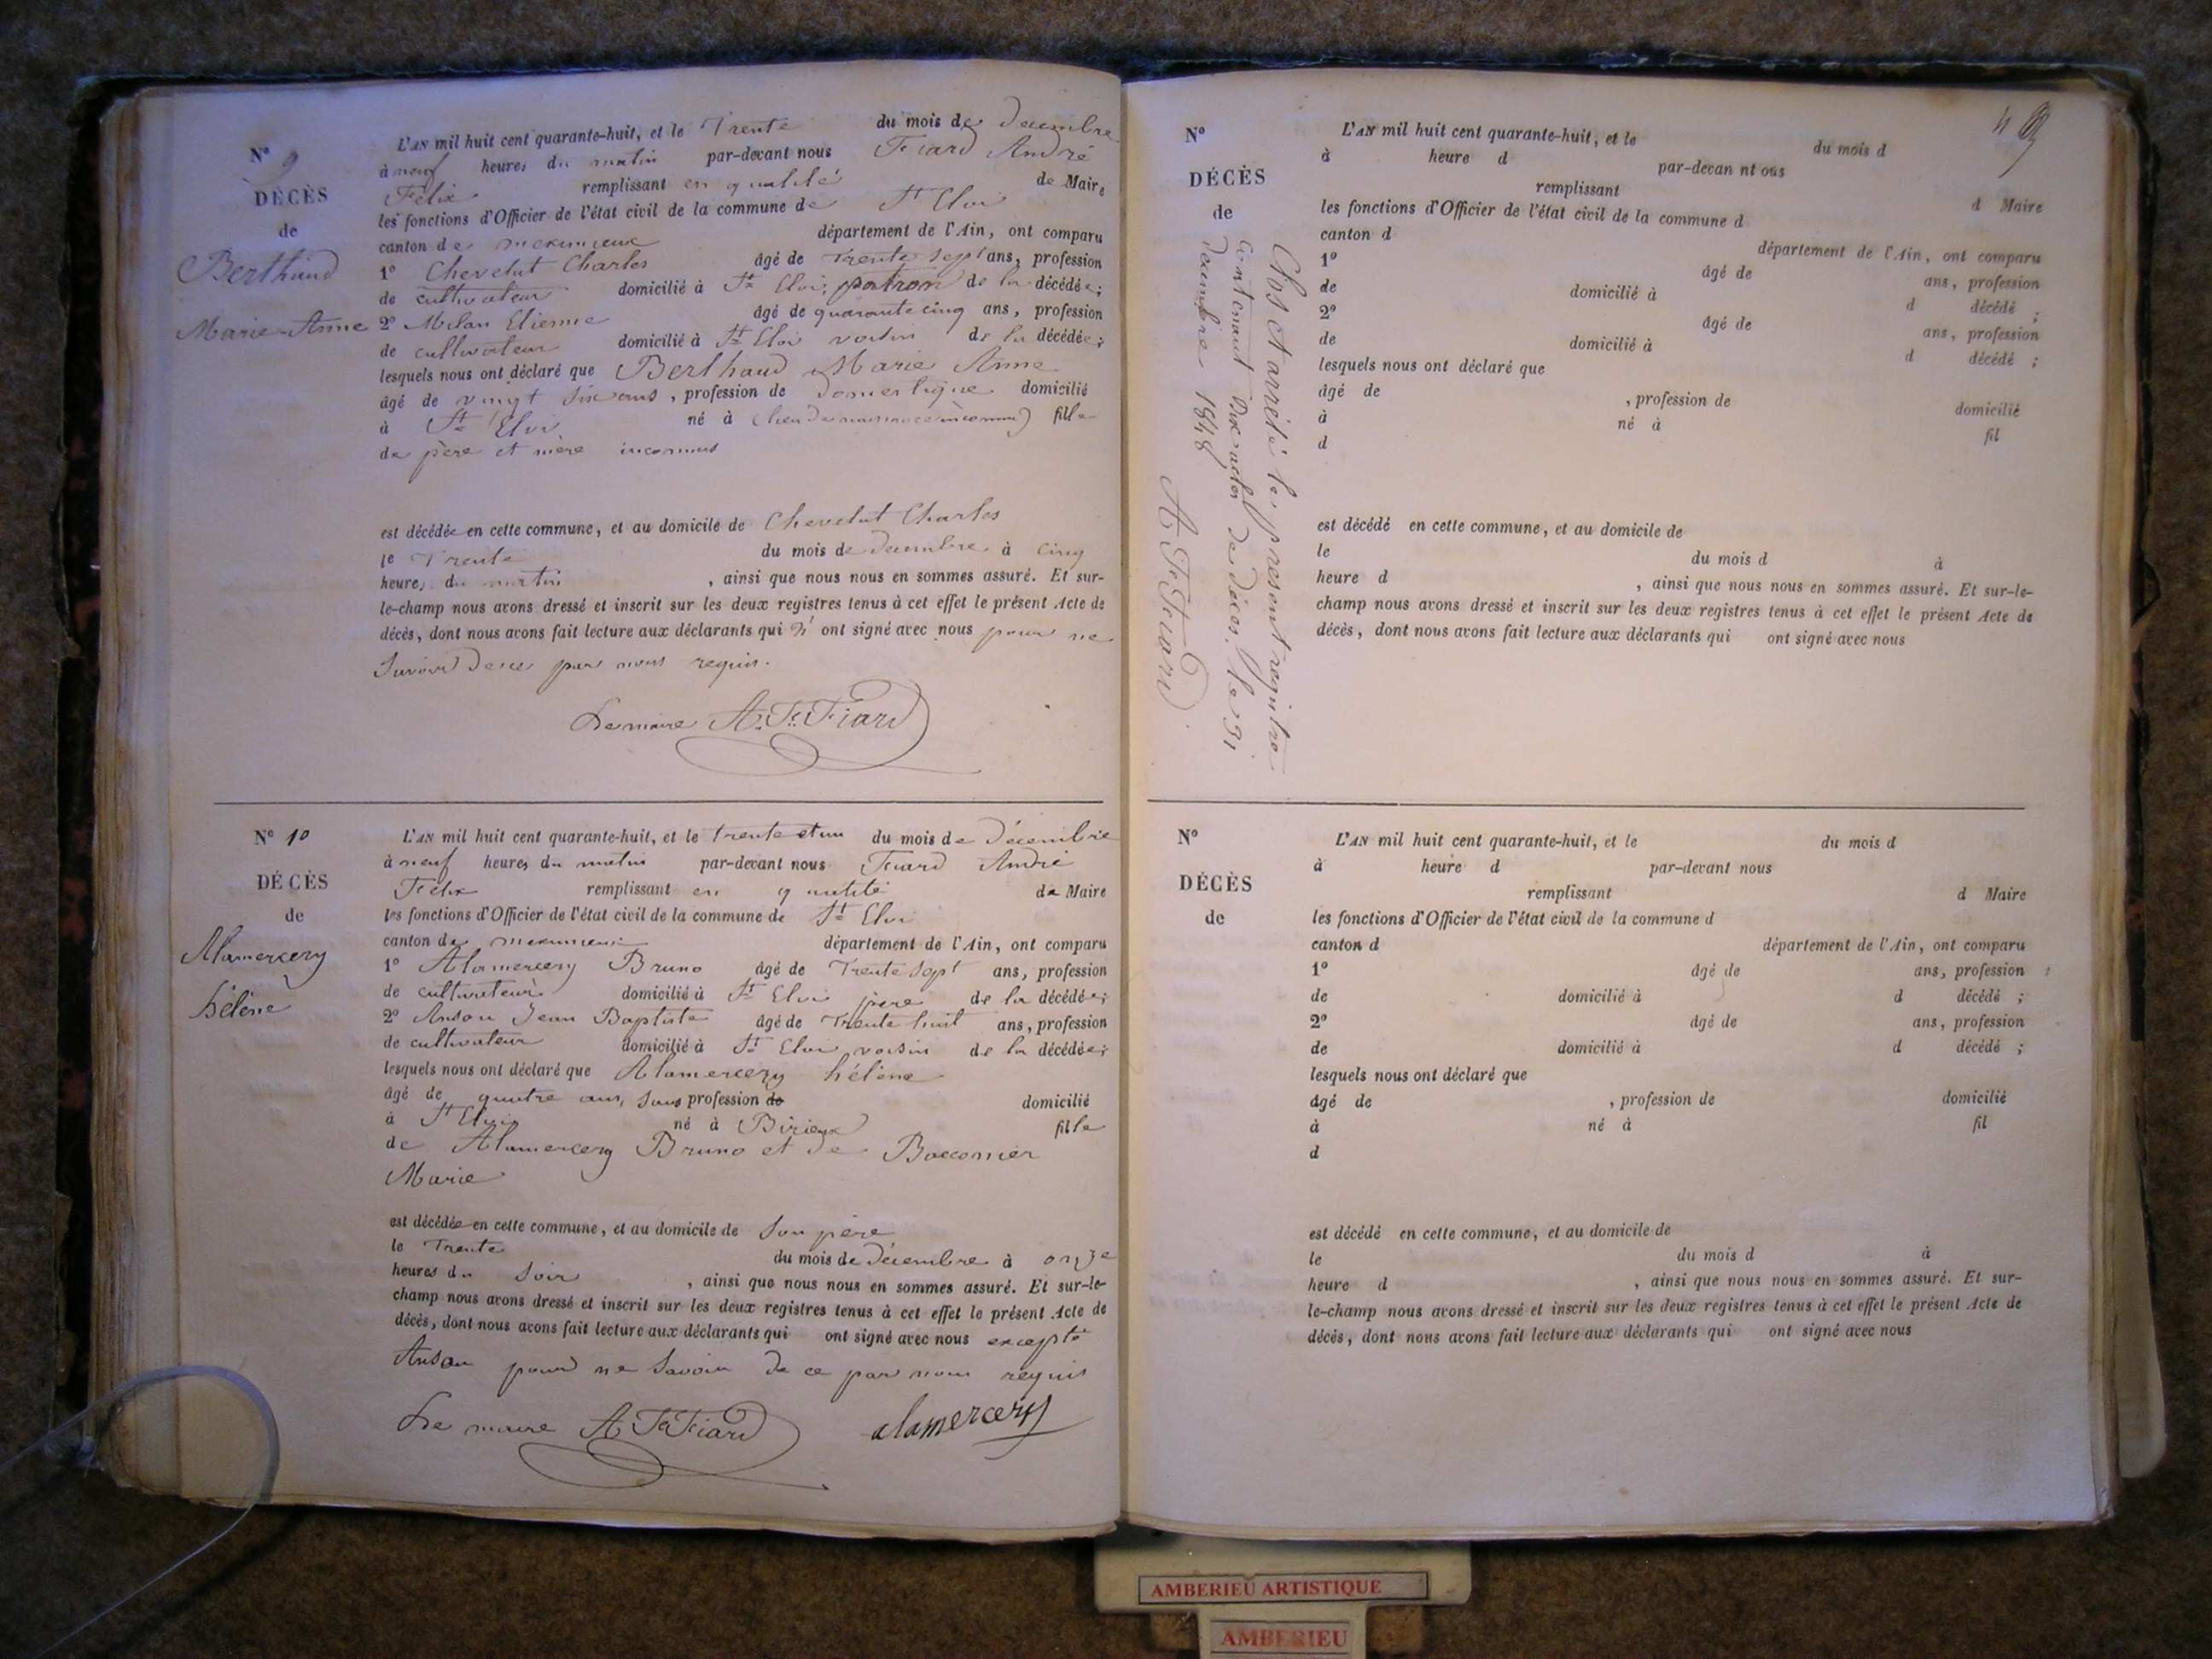 N° 9
DÉCÈS
de
Berthaud
Marie-Anne
L'AN mil huit cent quarante-huit, et le Trente du mois de Decembre
à neuf heures du matin par-devant nous Fiard André
Félix remplissant en qualité de Maire
les fonctions d'Officier de l'état civil de la commune de St Eloi
canton de meximieux département de l'Ain, ont comparu
1° Chevelut Charles âgé de Trente sept ans, profession
de cultivateur domicilié à St Eloi, patron de la décédée;
2° Milan Etienne âgé de quarante cinq ans, profession
de cultivateur domicilié à St Eloi voisin de la décédée;
lesquels nous ont déclaré que Berthaud Marie Anne
âgé de vingt six ans, profession de domestique domicilié
à St Eloi né à (lieu de naissance inconnu) fille
de père et mère inconnus
est décédée en cette commune, et au domicile de Chevelut Charles
le Trente du mois de decembre à cinq
heures du matin, ainsi que nous nous en sommes assuré. Et sur-
le-champ nous avons dressé et inscrit sur les deux registres tenus à cet effet le présent Acte de
décès, dont nous avons fait lecture aux déclarants qui n' ont signé avec nous pour ne
savoir de ce par nous requis.
Le maire A. Fx Fiard
N° 10
DÉCÈS
de
Alamercery
hélène
L'AN mil huit cent quarante-huit, et le trente et un du mois de Décembre
à neuf heures du matin par-devant nous Fiard André
Félix remplissant en qualité de Maire
les fonctions d'Officier de l'état civil de la commune de St Eloi
canton de meximieux département de l'Ain, ont comparu
1° Alamercery Bruno âgé de Trente sept ans, profession
de cultivateur domicilié à St Eloi père de la décédée;
2° Anson Jean Baptiste âgé de Trente huit ans, profession
de cultivateur domicilié à St Eloi voisin de la décédée;
lesquels nous ont déclaré que Alamercery hélène
âgé de quatre ans, sans profession de domicilié
à St Eloi né à Birieux fille
de Alamercery Bruno et de Bacconier
Marie
est décédée en cette commune, et au domicile de son père
le Trente du mois de Décembre à onze
heures du soir, ainsi que nous nous en sommes assuré. Et sur-le-
champ nous avons dressé et inscrit sur les deux registres tenus à cet effet le présent Acte de
décès, dont nous avons fait lecture aux déclarants qui ont signé avec nous excepté
Anson pour ne savoir de ce par nous requis
Le maire A Fx Fiard alamercery
N°
DÉCÈS
de
Clos et arrêté le présent registre
contenant Dix actes de décès. le 31
Décembre 1848
A Fx Fiard
L'AN mil huit cent quarante-huit, et le du mois d
à heure d par-devan nt ous
remplissant d Maire
les fonctions d'Officier de l'état civil de la commune d
canton d département de l'Ain, ont comparu
1° âgé de ans, profession
de domicilié à d décédé ;
2° âgé de ans, profession
de domicilié à d décédé ;
lesquels nous ont déclaré que
âgé de , profession de domicilié
à né à fil
d
est décédé en cette commune, et au domicile de
le du mois d à
heure d , ainsi que nous nous en sommes assuré. Et sur-le-
champ nous avons dressé et inscrit sur les deux registres tenus à cet effet le présent Acte de
décès, dont nous avons fait lecture aux déclarants qui ont signé avec nous
N°
DÉCÈS
de
L'AN mil huit cent quarante-huit, et le du mois d
à heure d par-devant nous
remplissant d Maire
les fonctions d'Officier de l'état civil de la commune d
canton d département de l'Ain, ont comparu
1° âgé de ans, profession
de domicilié à d décédé ;
2° âgé de ans, profession
de domicilié à d décédé ;
lesquels nous ont déclaré que
âgé de , profession de domicilié
à né à fil
d
est décédé en cette commune, et au domicile de
le du mois d à
heure d , ainsi que nous nous en sommes assuré. Et sur-
le-champ nous avons dressé et inscrit sur les deux registres tenus à cet effet le présent Acte de
décès, dont nous avons fait lecture aux déclarants qui ont signé avec nous
AMBERIEU ARTISTIQUE
AMBERIEU